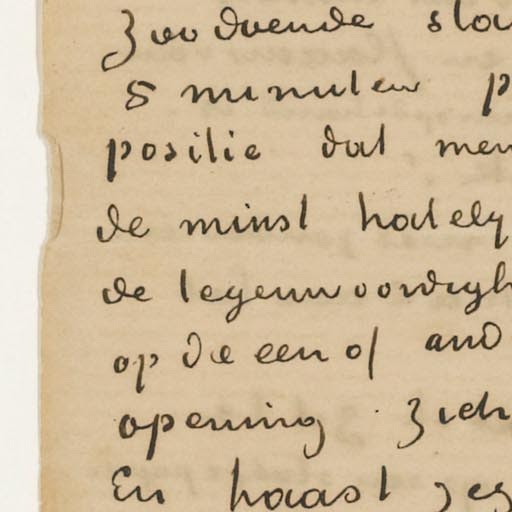 Zoodoende sta
5 minuten p
positie dat men
de minst hately
de tegenwoordigh
op die een of and
opening zich
En haast zeg